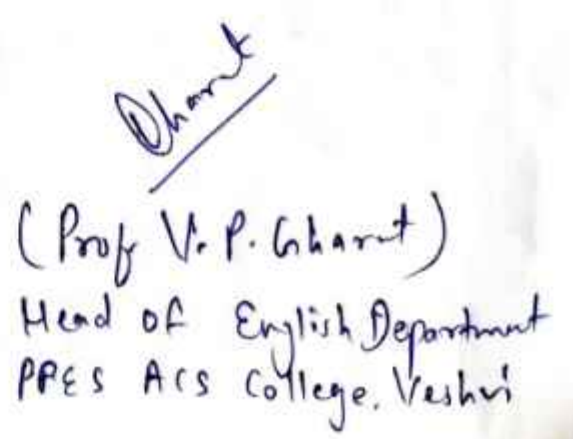 Gharat
(Prof V. P. Gharat)
Head of English Department
PPES ACS College. Veshvi